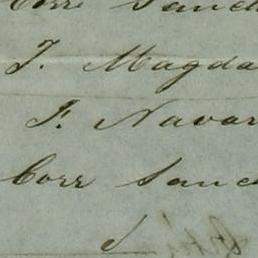 Corr Sanch
T. Magda
F. Navar
Corr Sanc